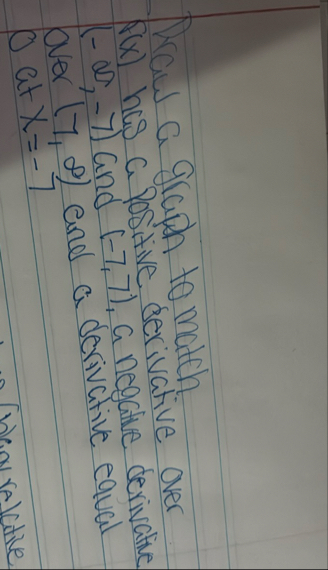 Draw a graph to match
f(x) has a Positive derivative over
(-∞, -7) and (-7, 7), a negative derivative
over (7, ∞) and a derivative equal
0 at x = -7
relative